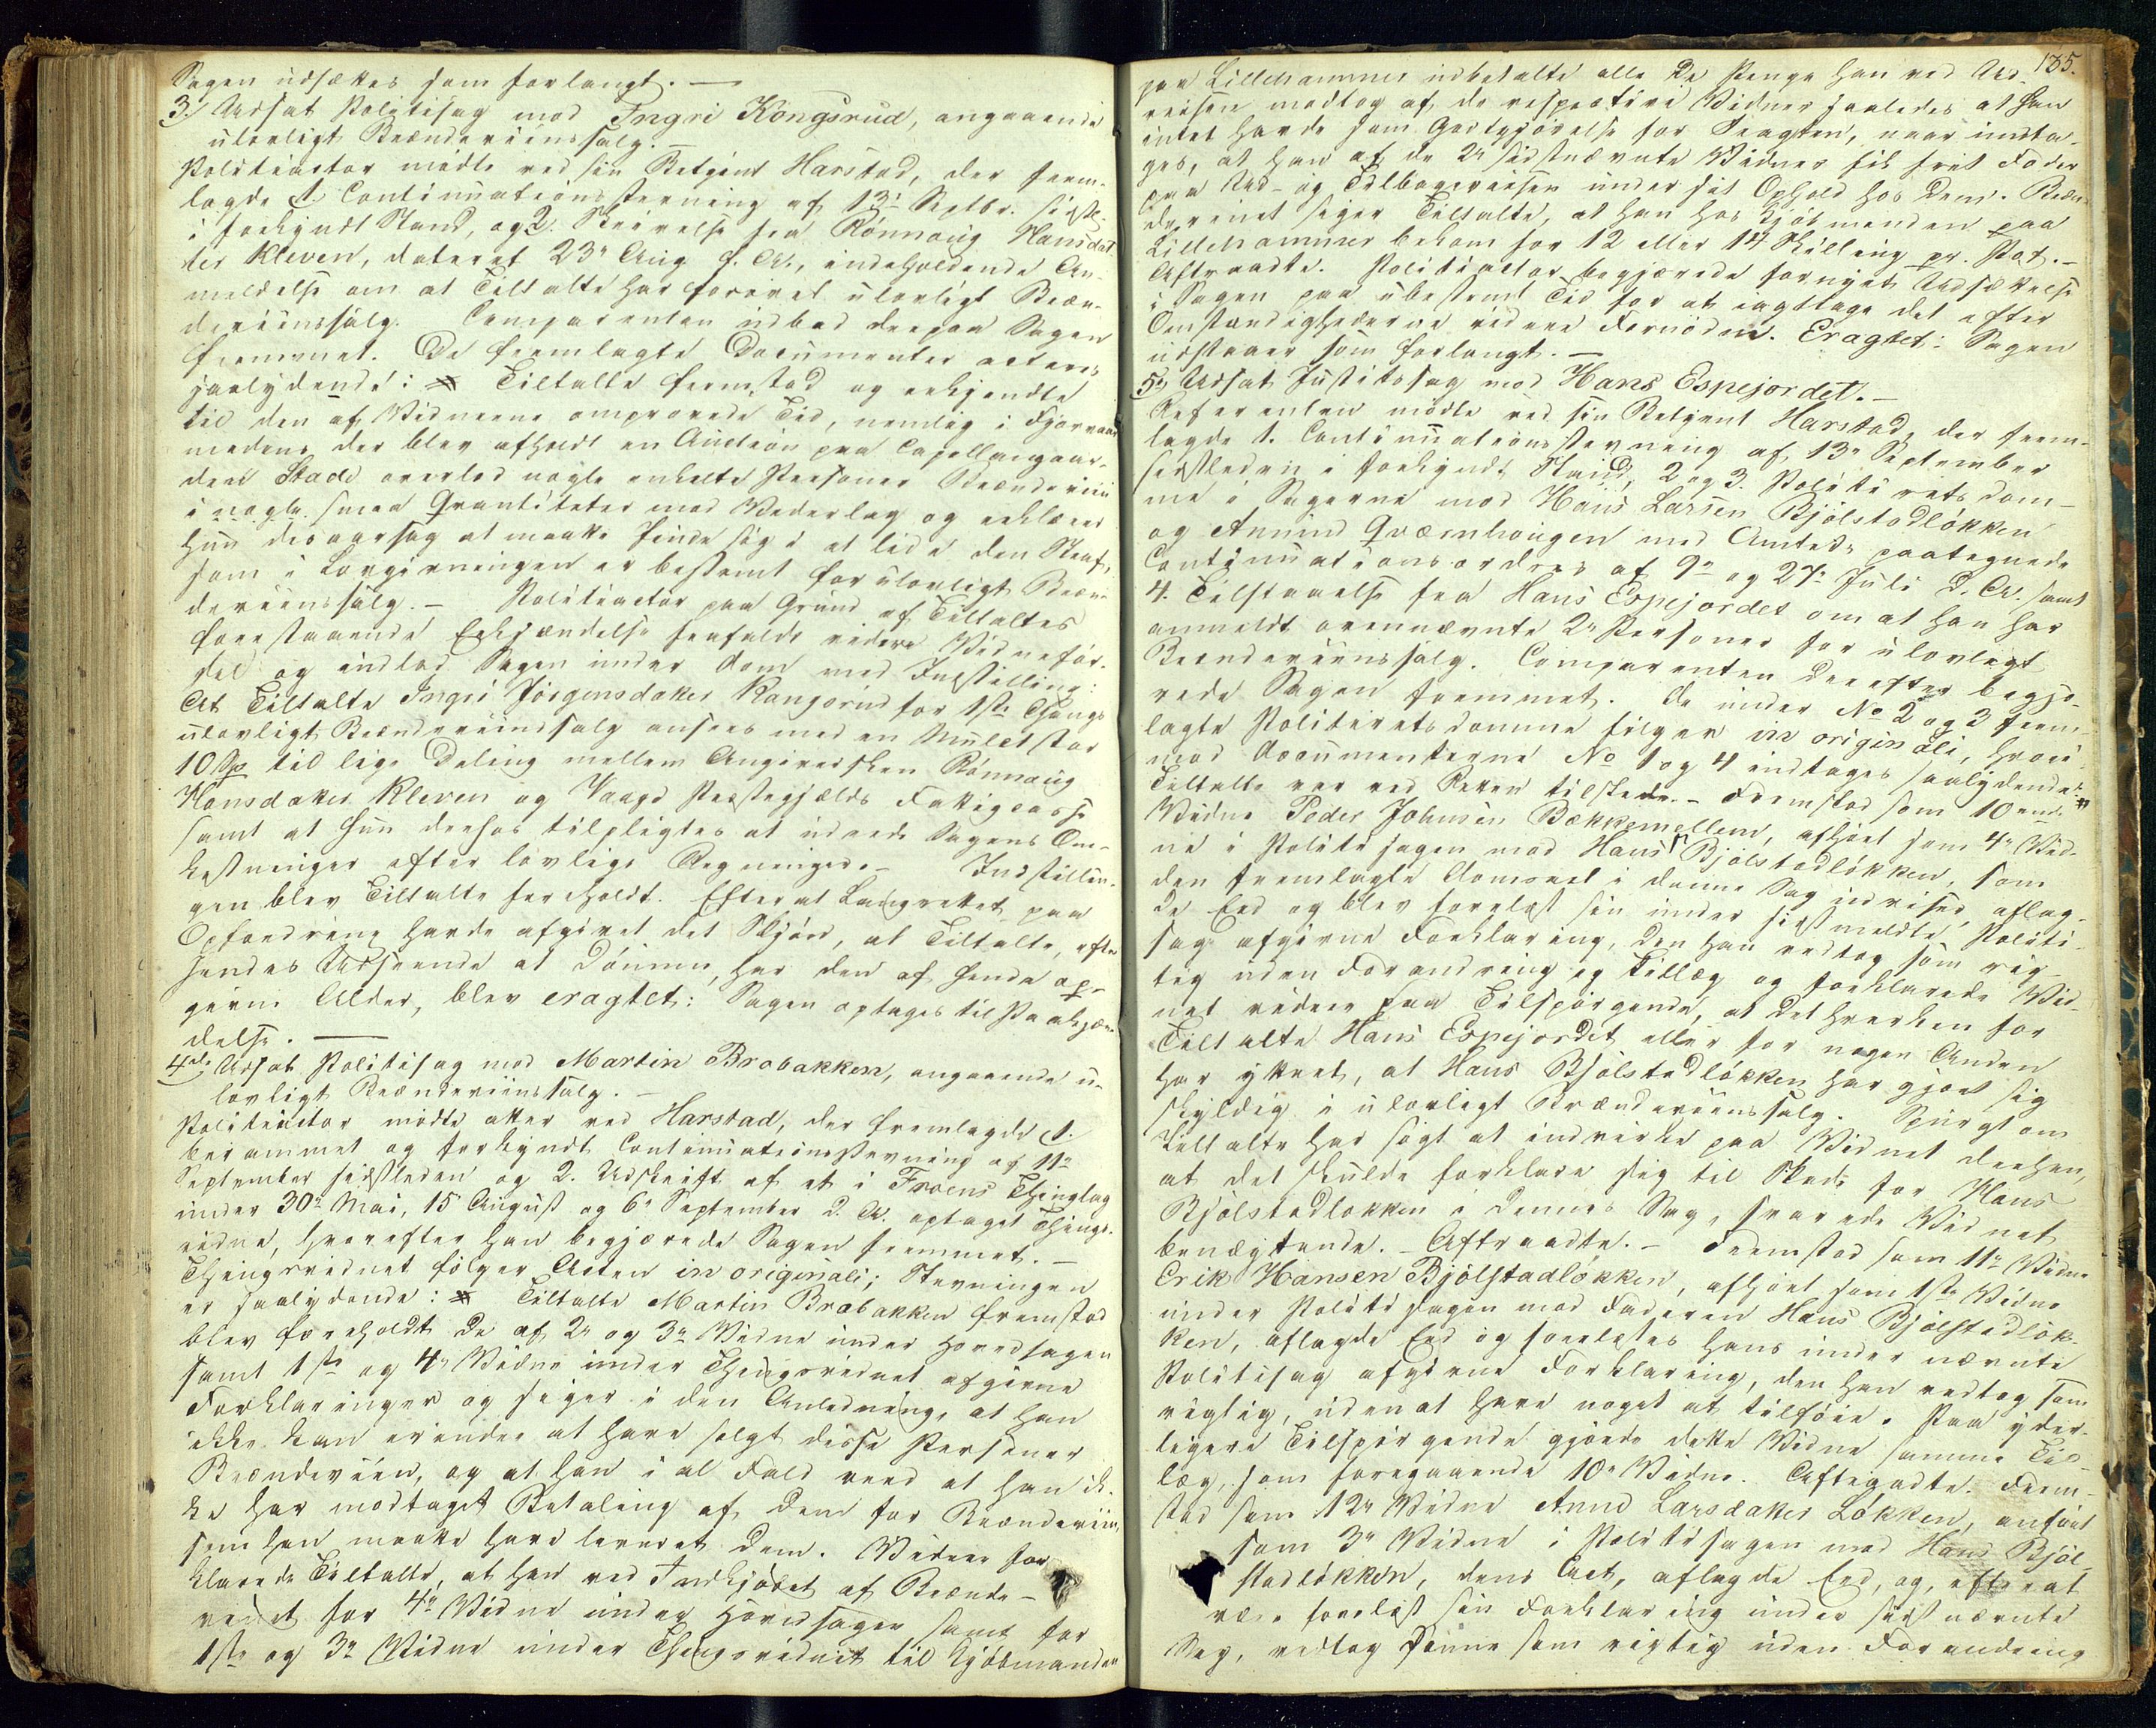 Sagen udsættes som forlangt. —
3./ Udsat Politisag mod Ingri Kongsrud, angaaende
ulovligt Brændeviinssalg. —
Politiactor mødte ved sin Betjent Harstad, der frem-
lagde 1. Continuationsstevning af 13de Septbr. sidstl.
i forkyndt Stand, og 2. Skrivelse fra Rønnaug Hansdat-
ter Kleven, dateret 23de Aug. d. A., indeholdende An-
meldelse om at Tiltalte har forøvet ulovligt Bræn-
deviinssalg. Comparenten udbad derpaa Sagen
fremmet. De fremlagte Documenter acteres
saalydende: # Tiltalte fremstod og erkjendte
til den af Vidnerne omprovede Tid, nemlig i Fjorvaar
medens der blev afholdt en Auction paa Capellangaar-
den Stade overlod nogle enkelte Personer Brændeviin
i nogle smaa Qvantiteter mod Vederlag og erklærer
hun desaarsag at maatte finde sig i at lide den Straf,
som i Lovgivningen er bestemt for ulovligt Bræn-
deviinssalg. — Politiactor paa Grund af Tiltaltes
forestaaende Erkjændelse frafaldt videre Vidneför-
sel og indlod Sagen under Dom med Indstilling:
At Tiltalte Ingri Jörgensdatter Kongsrud for 1ste Gangs
ulovligt Brændeviinssalg ansees med en Mulct stor
10 Sp til lige Deling mellem Angiversken Rönnaug
Hansdatter Kleven og Vaage Præstegjælds Fattigcasse
samt at hun derhos tilpligtes at udrede Sagens Om-
kostninger efter lovlige Regninger. — Indstillin-
gen blev Tiltalte foreholdt. Efterat Laugrettet paa
Opfordring havde afgivet det Skjøn, at Tiltalte, efter
hendes Udseende at dömme, har den af hende op-
givne Alder, blev eragtet: Sagen optages til Paakjæn-
delse. —
4de Udsat Politisag mod Martin Brobakken, angaaende u-
lovligt Brændeviinssalg. —
Politiactor mödte atter ved Harstad, der fremlagde 1.
berammet og forkyndt Continuationsstevning af 11te
September sidstleden og 2. Udskrift af et i Froens Thinglag
under 30te Mai, 15de August og 6te September d. A. optaget Things-
vidne, hvorefter han begjærede Sagen fremmet. —
Thingsvidnet fölger Acten in originali; Stevningen
er saalydende: # Tiltalte Martin Brobakken fremstod
blev foreholdt de af 2det og 3die Vidne under Hovedsagen
samt 1ste og 4de Vidne under Thingsvidnet afgivne
Forklaringer og siger i den Anledning, at han
ikke kan erindre at have solgt disse Personer
Brændeviin, og at han i al Fald veed at han ik-
ke har modtaget Betaling af dem for Brændeviin,
som han maatte have leveret dem. Videre for-
klarede Tiltalte, at han ved Indkjöbet af Brænde-
vinet for 4de Vidne under Hovedsagen samt for
1ste og 3die Vidne under Thingsvidnet til Kjöbmanden
135.
paa Lillehammer indbetalte alle de Penge han ved Ud-
reisen modtog af de respective Vidner saaledes at han
intet havde som Godtgjörelse for Fragten, naar undta-
ges, at han af de 2de sidstnævnte Vidner fik frit Foder
paa Ud- og Tilbagereisen under sit Ophold hos dem. Bræn-
devinet siger Tiltalte, at han hos Kjöbmanden paa
Lillehammer bekom for 12 eller 14 Skilling pr. Pot. —
Aftraadte. Politiactor begjærede fornyet Udsættelse
i Sagen paa ubestemt Tid for at iagttage det efter
Omstændighederne videre Fornödne. Eragtet: Sagen
udstaaer som forlangt. —
5te Udsat Justitssag mod Hans Espejordet. —
Referenten mödte ved sin Betjent Harstad, der frem-
lagde 1. Continuationsstevning af 13de September
sidstleden i forkyndt Stand, 2 og 3. Politirets dom-
me i Sagerne mod Hans Larsen Bjölstadlökken
og Amund Qværnhougen med Amtets paategnede
Continuationsordrer af 9de og 27de Juli d. A. samt
4. Tilstaaelse fra Hans Espejordet om at han har
anmeldt ovennævnte 2de Personer for ulovligt
Brændeviinssalg. Comparenten derefter begjæ-
rede Sagen fremmet. De under No 2 og 3 frem-
lagte Politiretsdomme fölger in originali, hvori-
mod Documenterne No 1 og 4 indtages saalydende: #
Tiltalte var ved Retten tilstede. — Fremstod som 10ende
Vidne Peder Johnsen Bækkemellem, afhört som 4de Vid-
ne i Politisagen mod Hans Bjölstadlökken, som
den fremlagte Domsact i denne Sag udviser, aflag-
de Eed og blev forelæst sin under sidstmeldte Politi-
sag afgivne Forklaring, den han vedtog som rig-
tig uden Forandring og Tillæg og forklarede Vid-
net videre paa Tilspørgende, at det hverken for
Tiltalte Hans Espejordet eller for nogen Anden
har yttret, at Hans Bjölstadlökken har gjort sig
skyldig i ulovligt Brændeviinssalg. Spurgt om
Tiltalte har sögt at indvirke paa Vidnet derhen,
at det skulde forklare sig til Skade for Hans
Bjölstadlökken i dennes Sag, svarede Vidnet
benægtende. — Aftraadte. — Fremstod som 11te Vidne
Erik Hansen Bjölstadlökken, afhört som 1ste Vidne
under Politisagen mod Faderen Hans Bjölstadlök-
ken, aflagde Eed og forelæstes hans under nævnte
Politisag afgivne Forklaring, den han vedtog som
rigtig, uden at have noget at tilföie. Paa yder-
ligere Tilspörgende gjorde dette Vidne samme Til-
læg, som foregaaende 10de Vidne. Aftraadte. Frem-
stod som 12te Vidne Anne Larsdatter Løkken, anført
som 3die Vidne i Politisagen mod Hans Bjöl-
stadlökken, dens Act, aflagde Eed, og, efterat
være forelæst sin Forklaring under sidstnævnte
Sag, vedtog samme som rigtig uden Forandring